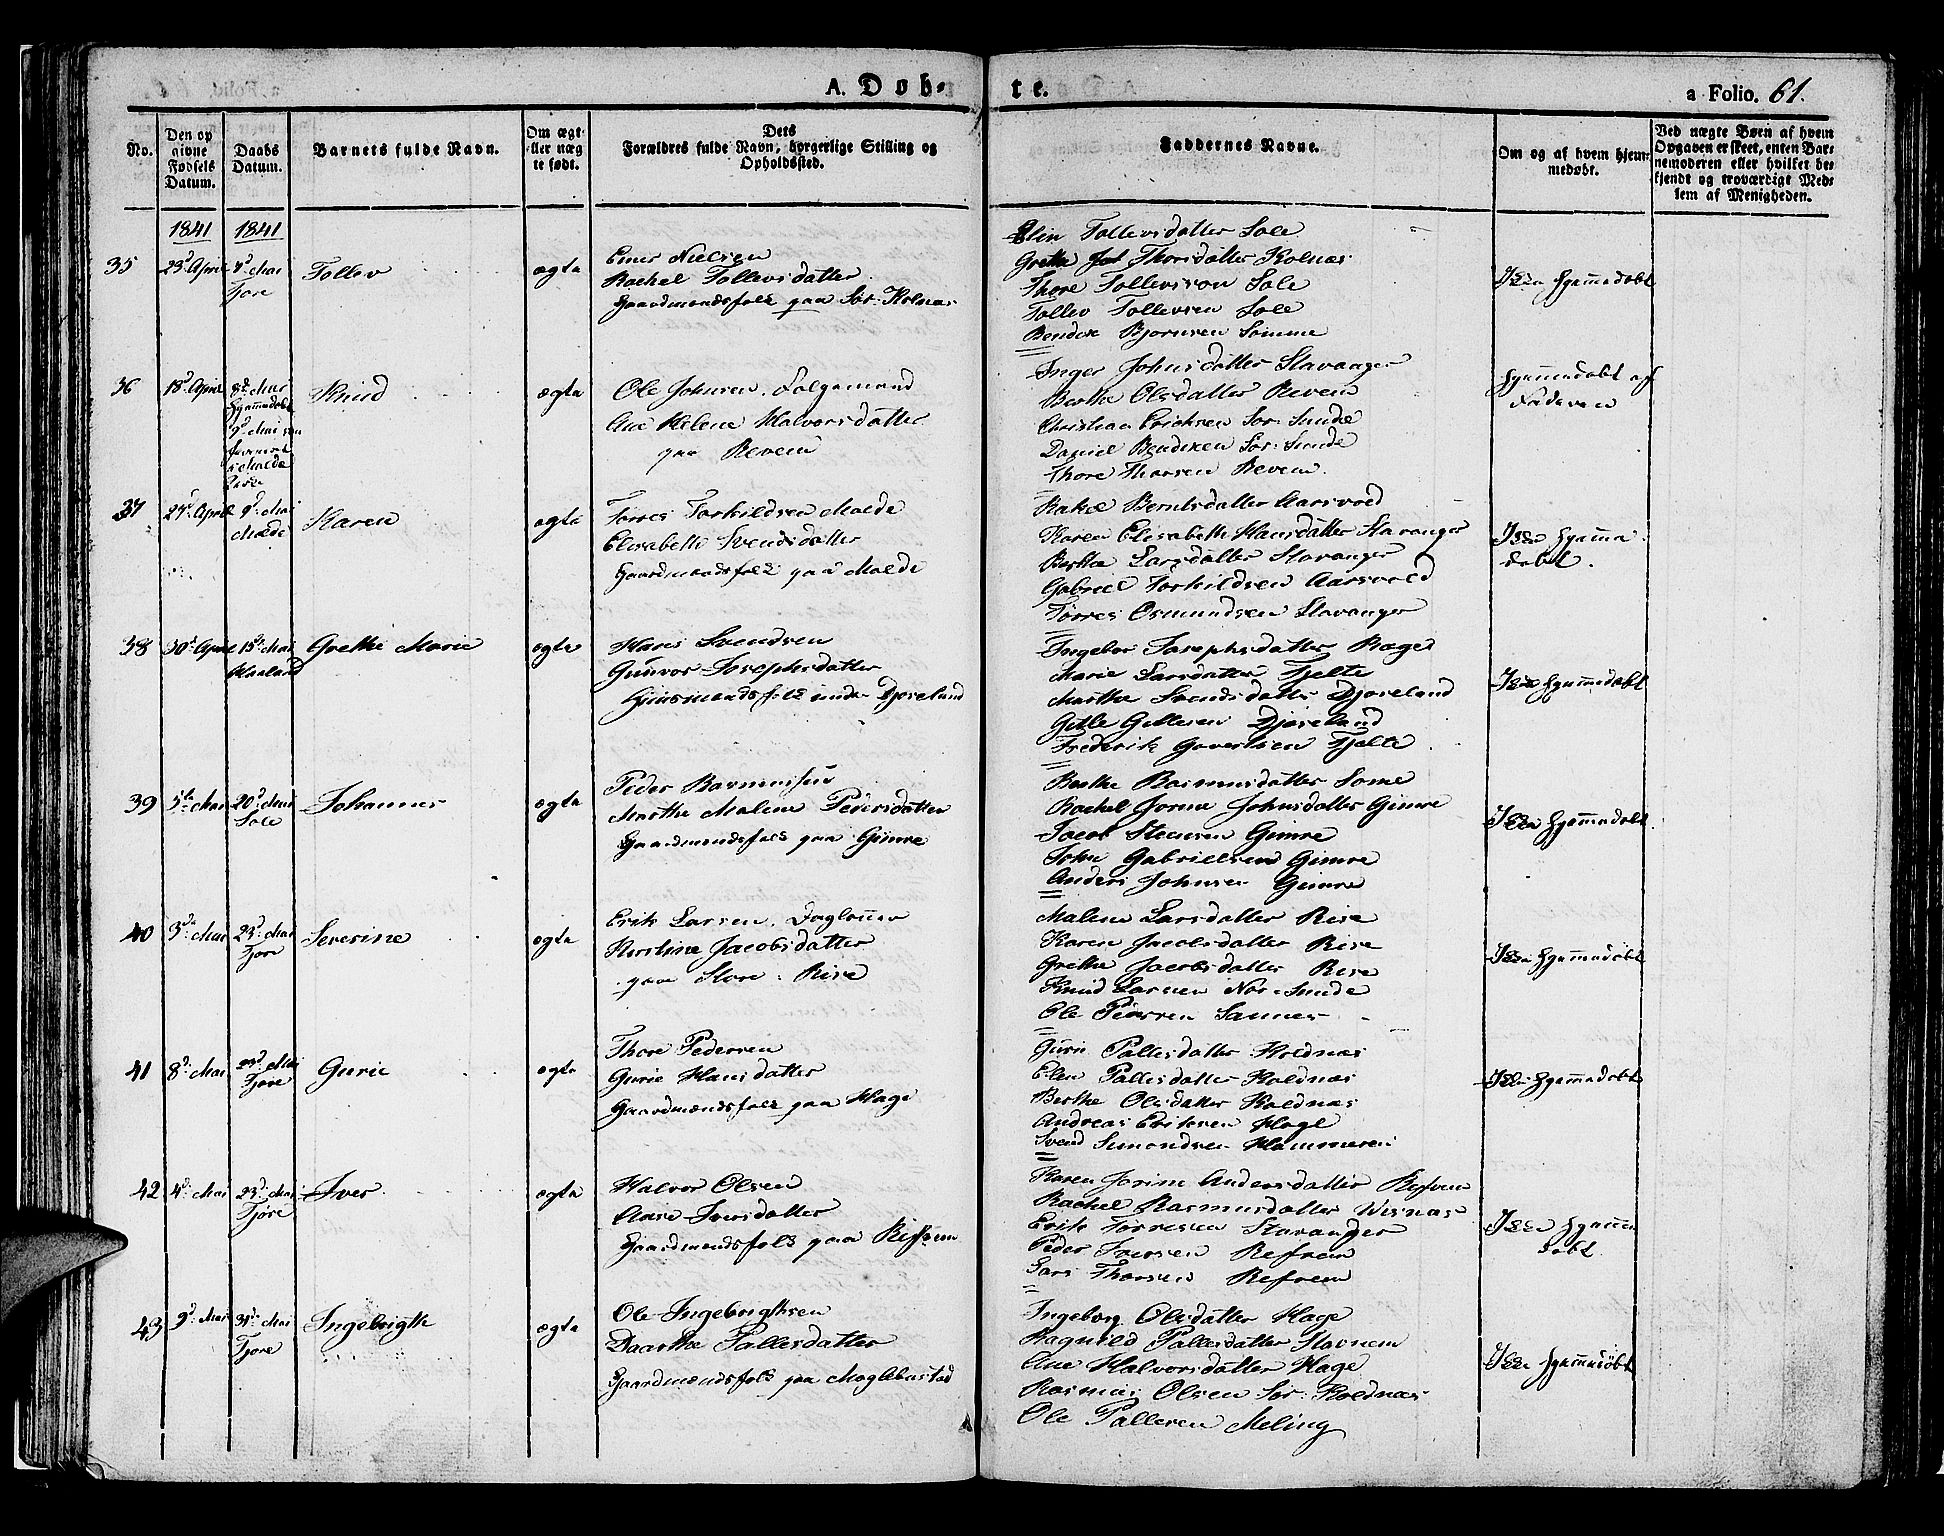 A. Døb-
te.
a Folio. 61.
No.
Den op
givne
Fødsels
Datum.
Daabs
Datum.
Barnets fulde Navn.
Om ægt-
eller næg
te født.
Dets
Forældres fulde Navn, borgerlige Stilling og
Opholdssted.
Faddernes Navne.
Om og af hvem hjem-
medøbt.
Ved uægte Børn af hvem
Opgaven er skeet, enten Bar-
nemoderen eller hvilket be-
kjendt og troværdigt Med-
lem af Menigheden.
1841 1841
35 23d April 2d Mai
Tjore
Tollev
ægte
Einer Nielsen
Rachel Tollevsdatter
Gaardmandsfolk paa Sør-Kolnæs
Elin Tollevsdatter Sole
Grethe Thorsdatter Kolnæs
Thore Tollevsson Sole
Tollev Tollevsen Sole
Bendix Bjørnsen Sømme
Ikke hjemmedøbt
36 18d April 8de Mai
hjemmedøbt
9d Mai
Malde
Knud
ægte
Ole Johnsen, Folgemand
Ane Helene Halvorsdatter
paa Revem
Inger Johnsdatter Stavanger
Berthe Olsdatter Revem
Christian Erichsen Sør-Sunde
Daniel Bendixen Sør-Sunde
Thore Thorsen Revem.
Hjemmedøbt af
Faderen
37 27d April 9d Mai
Malde
Karen
ægte
Torres Torkildsen Malde
Elisabeth Svendsdatter
Gaardmandsfolk paa Malde
Rakel Berntsdatter Aarsvold
Karen Elisabeth Hansdatter Stavanger
Berthe Larsdatter Stavanger
Gabriel Torkildsen Aarsvold
Tørres Osmundsen Stavanger
Ikke hjemme
døbt.
38 30d April 15de Mai
Haaland
Grethe Marie
ægte
Hans Svendsen
Gunvor Josephsdatter
Huusmandsfolk under Djøseland
Ingebor Josephsdatter Ræge
Marie Larsdatter Tjelte
Marthe Svendsdatter Djøseland
Gitle Gitlesen Djøseland
Frederik Govertsen Tjelte
Ikke hjemmedøbt
39 5te Mai 20d Mai
Sole
Johannes
ægte
Peder Rasmussen
Marthe Malene Pedersdatter
Gaardmandsfolk paa Gimre
Berthe Rasmusdatter Some
Rachel Johnsdatter Gimre
Jacob Steensen Gimre
John Gabrielsen Gimre
Anders Johnsen Gimre
Ikke hjemmedøbt
40 3die Mai 23d Mai
Tjore
Severine
ægte
Erik Larsen, Daglønner
Kirstine Jacobsdatter
paa Store-Rise
Malene Larsdatter Rise
Karen Jacobsdatter Rise
Grethe Jacobsdatter Rise
Knud Larsen Nor-Sunde
Ole Sannes
Ikke hjemmedøbt
41 8d Mai 23d Mai
Tjore
Gurie
ægte
Thore Pedersen
Gurie Hansdatter
Gaardmændsfolk paa Hage
Guri Pallesdatter Koldnæs
Elen Pallesdatter Koldnæs
Berthe Olsdatter Koldnæs
Andreas Eriksen Hage
Svend Simondsen Hammeren
Ikke hjemmedøbt
42 4d Mai 23d Mai
Tjore
Iver
ægte
Halvor Olsen
Ane Iversdatter
Gaardmændsfolk paa Refsem
Karen Jorine Andersdatter Refsem
Rachel Rasmusdatter Wisnæs
Erik Torresen Stavanger
Peder Iversen Refsem
Lars Thorsen Refsem
Ikke hjemme
døbt.
43 9d Mai 31d Mai
Tjore
Ingebrigth
ægte
Ole Ingebrigthsen
Daarthe Pallesdatter
Gaardmændsfolk paa Moglebustad
Ingeborg Olsdatter Hage
Hagnild Pallesdatter Stavnem
Ane Halvorsdatter Hage
Rasmus Olsen Sør-Koldnæs
Ole Pallesen Meling
Ikke hjemmedøbt